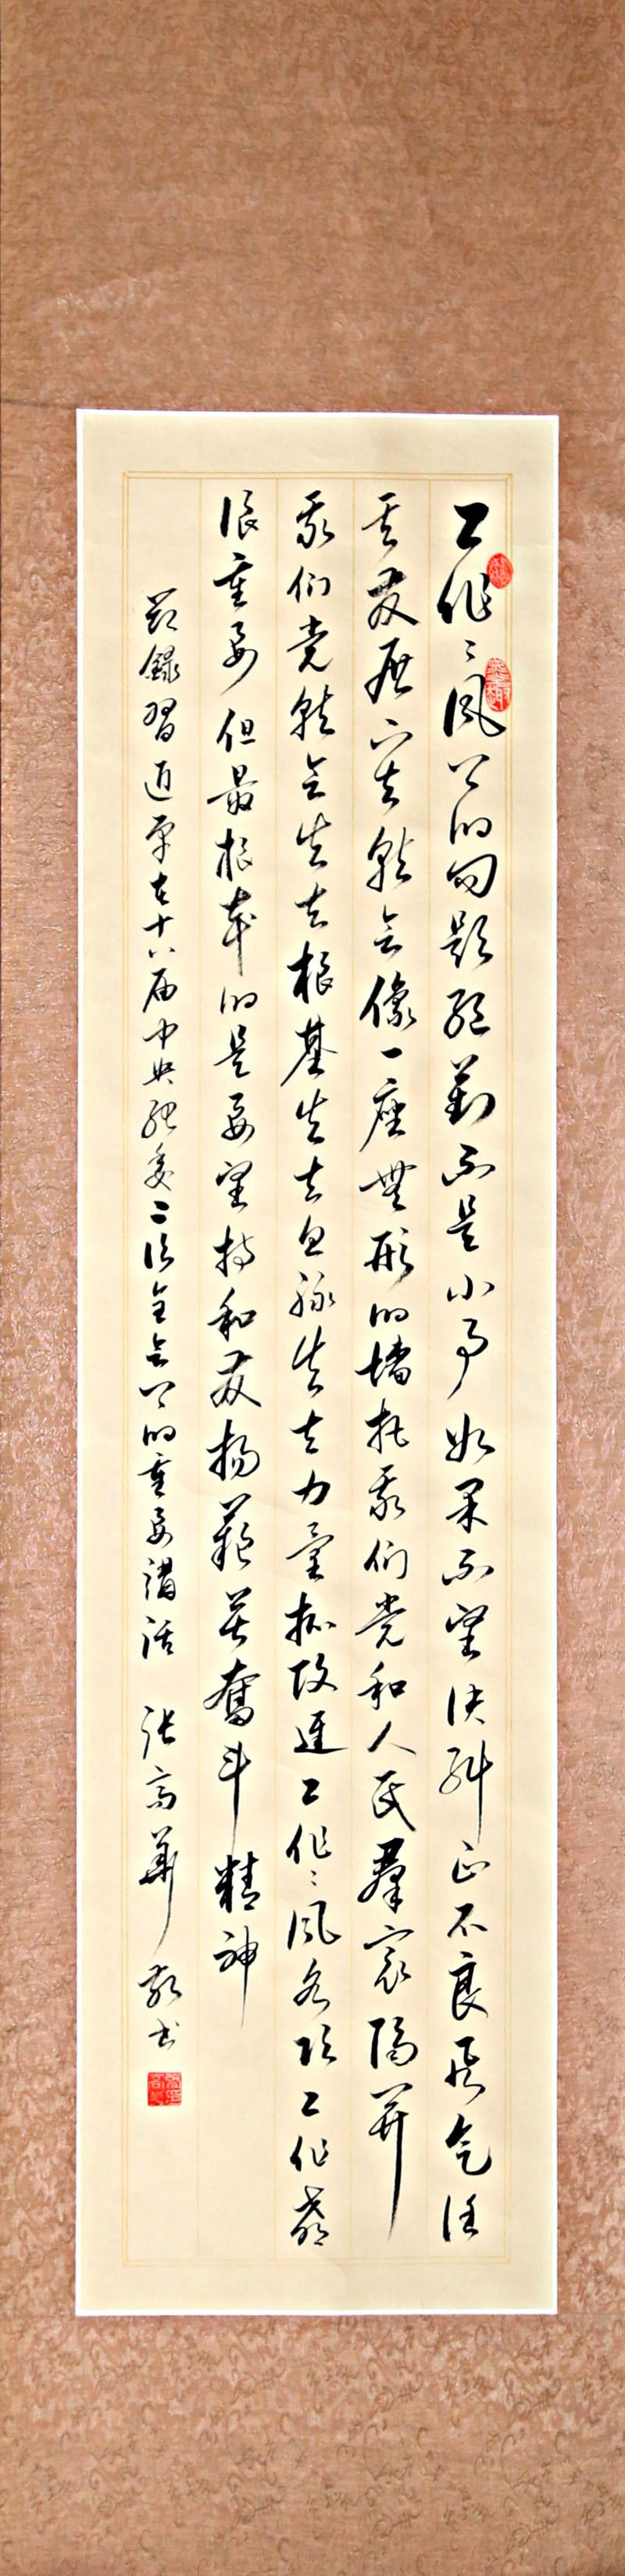 工作〻风上的问题绝對不是小事如果不坚决纠正不良风气任
其发展下去就会像一座無形的墙把我们党和人民羣众隔开
我们党就会失去根基失去血脉失去力量抓改进工作〻风各项工作都
很重要但最根本的是要坚持和发扬艱苦奮斗精神
节錄習近平在十八届中央纪委二次全会上的重要講话 张高華 敬书